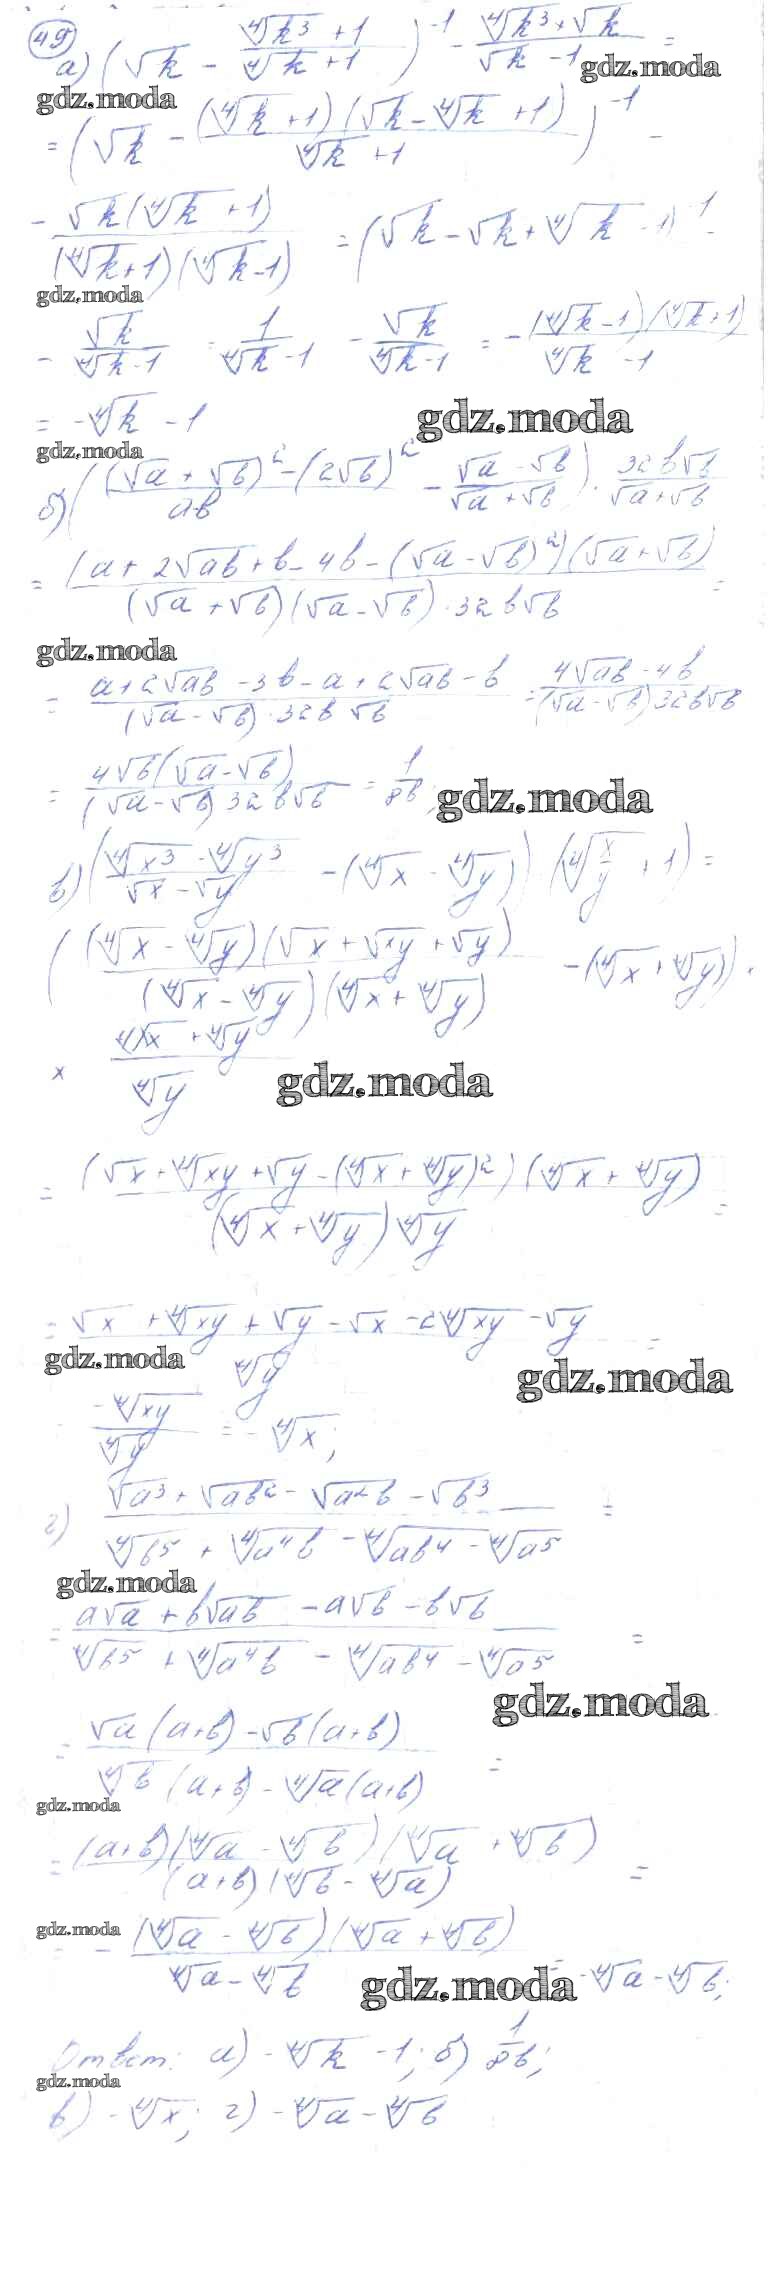 49
а) (√k − (∜k³ + 1)/(∜k + 1))⁻¹ − (∜k³ + √k)/(√k − 1) =
gdz.moda
gdz.moda
= (√k − (∜k + 1)(√k − ∜k + 1)/(∜k + 1))⁻¹ −
− √k(∜k + 1)/((∜k + 1)(∜k − 1)) = (√k − √k + ∜k − 1)⁻¹ −
gdz.moda
− √k/(∜k − 1) = 1/(∜k − 1) − √k/(∜k − 1) = −(∜k − 1)(∜k + 1)/(∜k − 1)
= −∜k − 1
gdz.moda
gdz.moda
б) (((√a + √b)² − (2√b)²)/(ab) − (√a − √b)/(√a + √b)) · 32b√b/(√a + √b)
= (a + 2√ab + b − 4b − (√a − √b)²)(√a + √b)/((√a + √b)(√a − √b) · 32b√b) =
gdz.moda
= (a + 2√ab − 3b − a + 2√ab − b)/((√a − √b) · 32b√b) = (4√ab − 4b)/((√a − √b)32b√b)
= 4√b(√a − √b)/((√a − √b)32b√b) = 1/8b;
gdz.moda
в) ((∜x³ − ∜y³)/(√x − √y) − (∜x − ∜y))(∜(x/y) + 1) =
((∜x − ∜y)(√x + √xy + √y)/((∜x − ∜y)(∜x + ∜y)) − (∜x + ∜y)) ·
× (∜x + ∜y)/∜y
gdz.moda
= (√x + ∜xy + √y − (∜x + ∜y)²)(∜x + ∜y)/((∜x + ∜y)∜y) =
= (√x + ∜xy + √y − √x − 2∜xy − √y)/∜y =
gdz.moda
gdz.moda
−∜xy/∜y = −∜x;
г) (√a³ + √ab² − √a²b − √b³)/(∜b⁵ + ∜a⁴b − ∜ab⁴ − ∜a⁵) =
gdz.moda
= (a√a + b√ab − a√b − b√b)/(∜b⁵ + ∜a⁴b − ∜ab⁴ − ∜a⁵) =
gdz.moda
= (√a(a+b) − √b(a+b))/(∜b(a+b) − ∜a(a+b)) =
gdz.moda
= (a+b)(∜a − ∜b)(∜a + ∜b)/((a+b)(∜b − ∜a)) =
gdz.moda
= −(∜a − ∜b)(∜a + ∜b)/(∜a − ∜b) = −∜a − ∜b;
gdz.moda
Ответ: а) −∜k − 1; б) 1/8b;
gdz.moda
в) −∜x; г) −∜a − ∜b